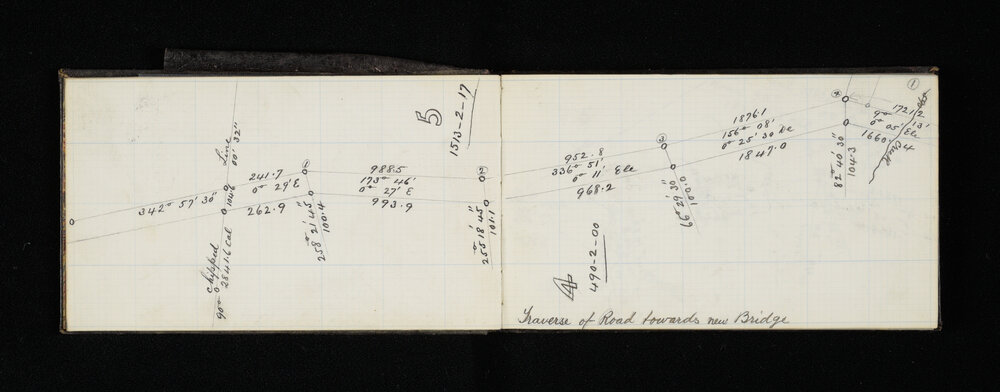 342° 57' 30"
Line
00' 32"
104.6
90°
Chipped
2841.6 Cal
241.7
0° 29' E
262.9
258° 21' 45"
100.4
988.5
173° 46'
0° 27' E
993.9
5
1513-2-17
2
255° 18' 45"
101.1
952.8
336° 51'
0° 11' Ele
968.2
3
66° 29' 30"
100.0
1876.1
156° 08'
0° 25' 30
1847.0
4
82° 40' 30"
104.3
1
1721.2
0° 05' Ele
1660.4
Creek
4
490-2-00
Traverse of Road towards new Bridge